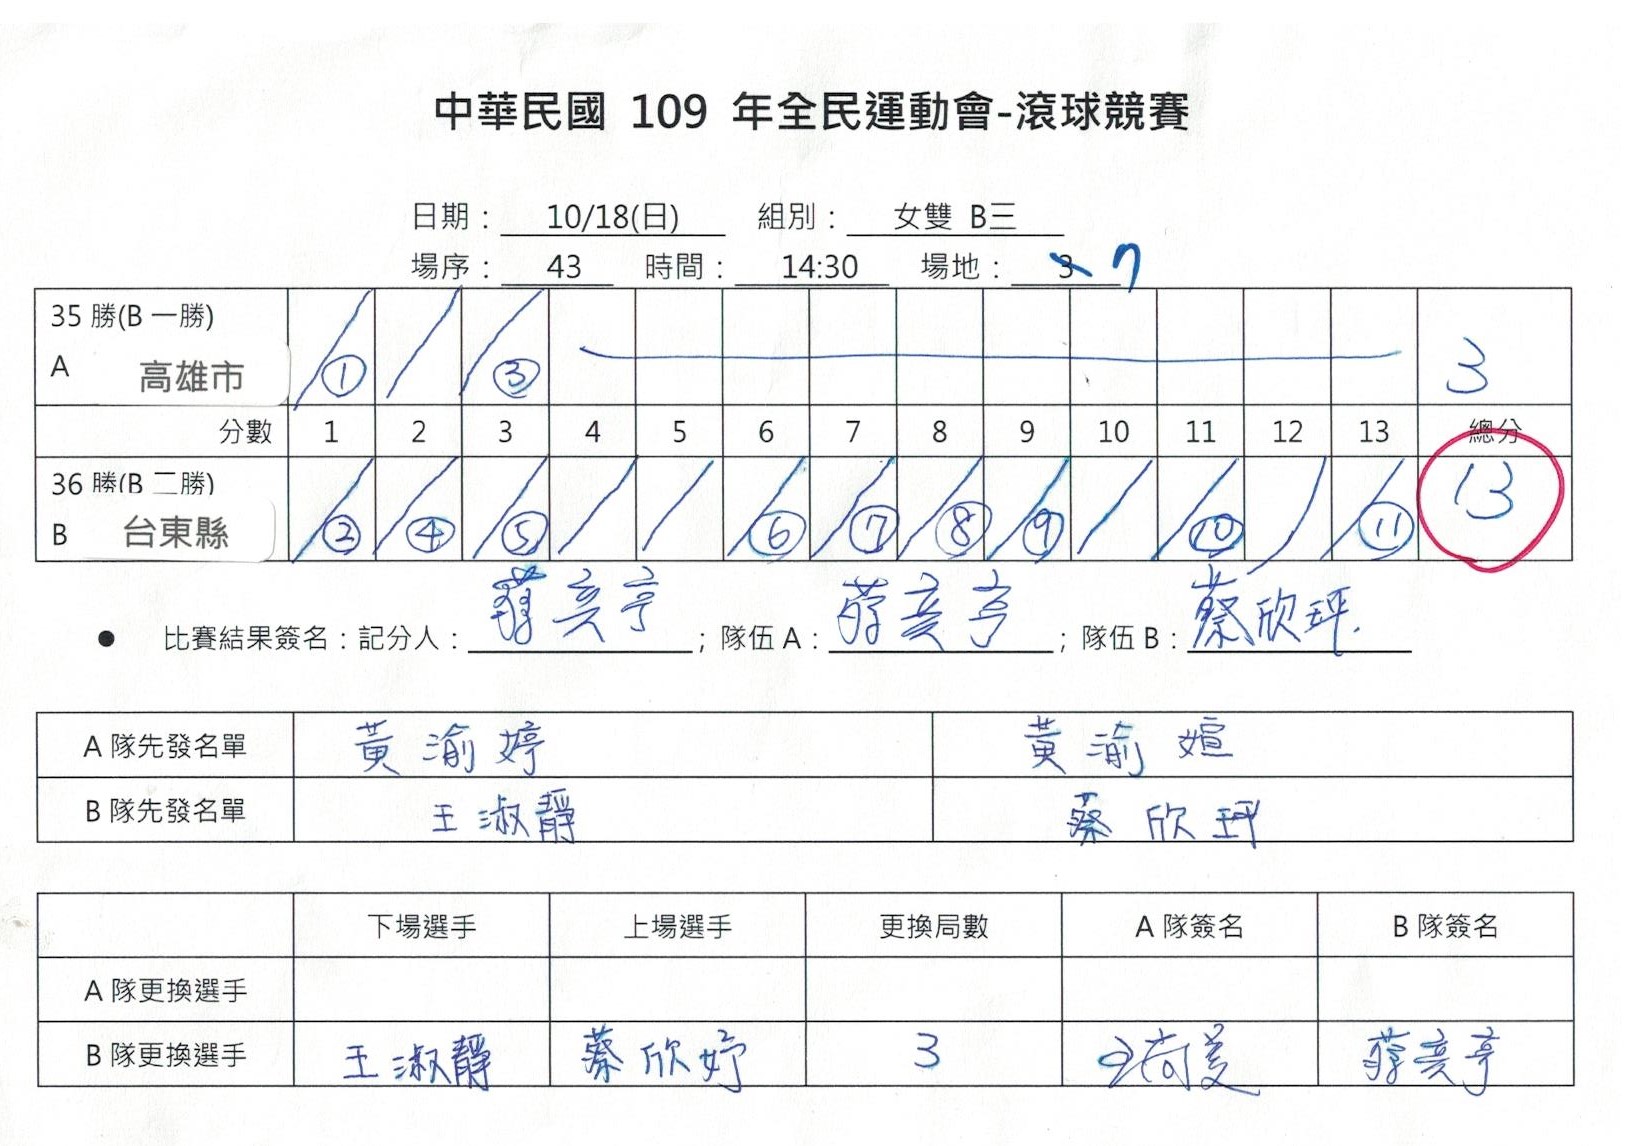 中華民國 109 年全民運動會-滾球競賽
日期： 10/18(日) 組別： 女雙 B三
場序： 43 時間： 14:30 場地： 3 7
35 勝(B 一勝)
A 高雄市 ① ③ 3
分數 1 2 3 4 5 6 7 8 9 10 11 12 13 總分
36 勝(B 二勝)
B 台東縣 ② ④ ⑤ ⑥ ⑦ ⑧ ⑨ ⑩ ⑪ 13
● 比賽結果簽名：記分人： ；隊伍 A： ；隊伍 B：蔡欣玶
A 隊先發名單 黃渝婷 黃渝媗
B 隊先發名單 王淑靜 蔡欣玶
下場選手 上場選手 更換局數 A 隊簽名 B 隊簽名
A 隊更換選手
B 隊更換選手 王淑靜 蔡欣妤 3